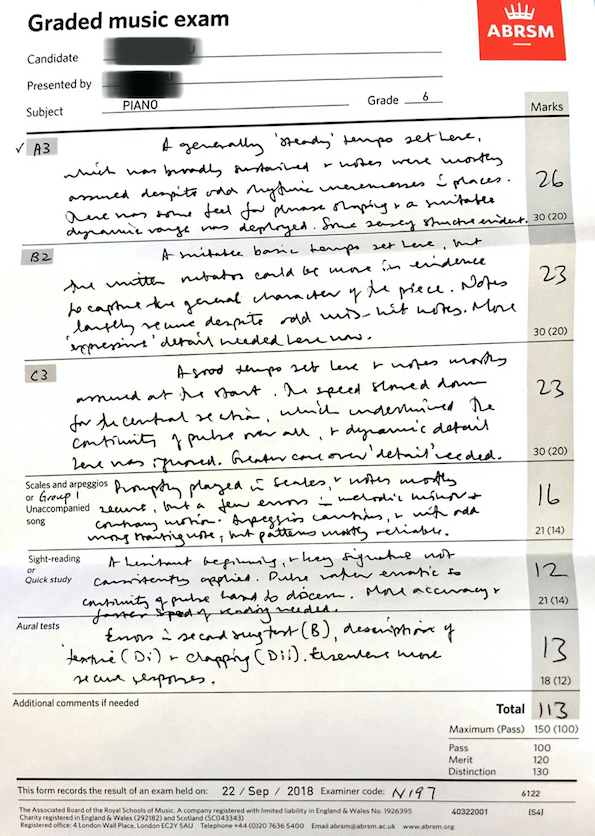 Graded music exam
ABRSM
Candidate
Presented by
Subject PIANO Grade 6
Marks
✓ A3 A generally 'steady' tempo set here,
which was broadly sustained & notes were mostly
assured despite odd rhythmic unevennesses in places.
There was some feel for phrase shaping & a suitable
dynamic range was deployed. Some sense of structure evident.
26
30 (20)
B2 A suitable basic tempo set here, but
the written rubatos could be more in evidence
to capture the general character of the piece. Notes
largely secure despite odd mis-hit notes. More
'expressive' detail needed here now.
23
30 (20)
C3 A good tempo set here & notes mostly
assured at the start. The speed slowed down
for the central section, which undermined the
continuity of pulse over all, & dynamic detail
here was ignored. Greater care over 'detail' needed.
23
30 (20)
Scales and arpeggios
or Group 1
Unaccompanied
song
Promptly played in scales, & notes mostly
secure, but a few errors in melodic minor &
contrary motion. Arpeggios cautious, & with odd
wrong starting note, but patterns mostly reliable.
16
21 (14)
Sight-reading
or
Quick study
A hesitant beginning, & key signature not
consistently applied. Pulse rather erratic so
continuity of pulse hard to discern. More accuracy &
faster speed of reading needed.
12
21 (14)
Aural tests
Errors in second sung test (B), descriptions of
texture (Di) & clapping (Dii). Elsewhere more
secure responses.
13
18 (12)
Additional comments if needed
Total 113
Maximum (Pass) 150 (100)
Pass 100
Merit 120
Distinction 130
This form records the result of an exam held on: 22 / Sep / 2018 Examiner code: N197 6122
The Associated Board of the Royal Schools of Music. A company registered with limited liability in England & Wales No. 1926395
Charity registered in England & Wales (292182) and Scotland (SC043343)
Registered office: 4 London Wall Place, London EC2Y 5AU Telephone +44 (0)20 7636 5400 Email abrsm@abrsm.ac.uk www.abrsm.org
40322001 [S4]